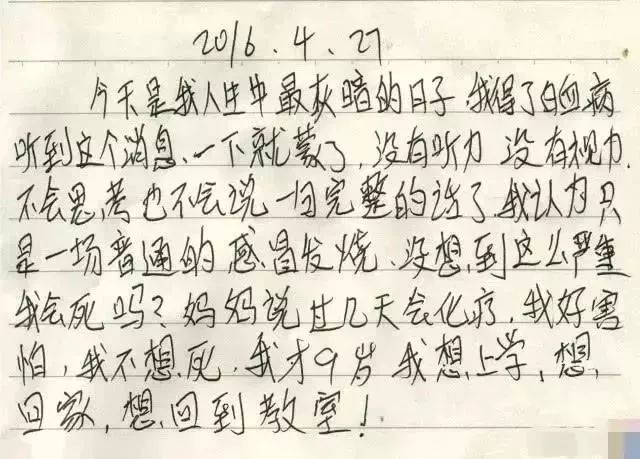 2016.4.27
今天是我人生中最灰暗的日子.我得了白血病
听到这个消息、一下就蒙了,没有听力 没有视力.
不会思考也不会说一句完整的话了.我认为只
是一场普通的感冒发烧、没想到这么严重
我会死吗?妈妈说过几天会化疗,我好害
怕,我不想死.我才9岁 我想上学,想
回家,想回到教室!